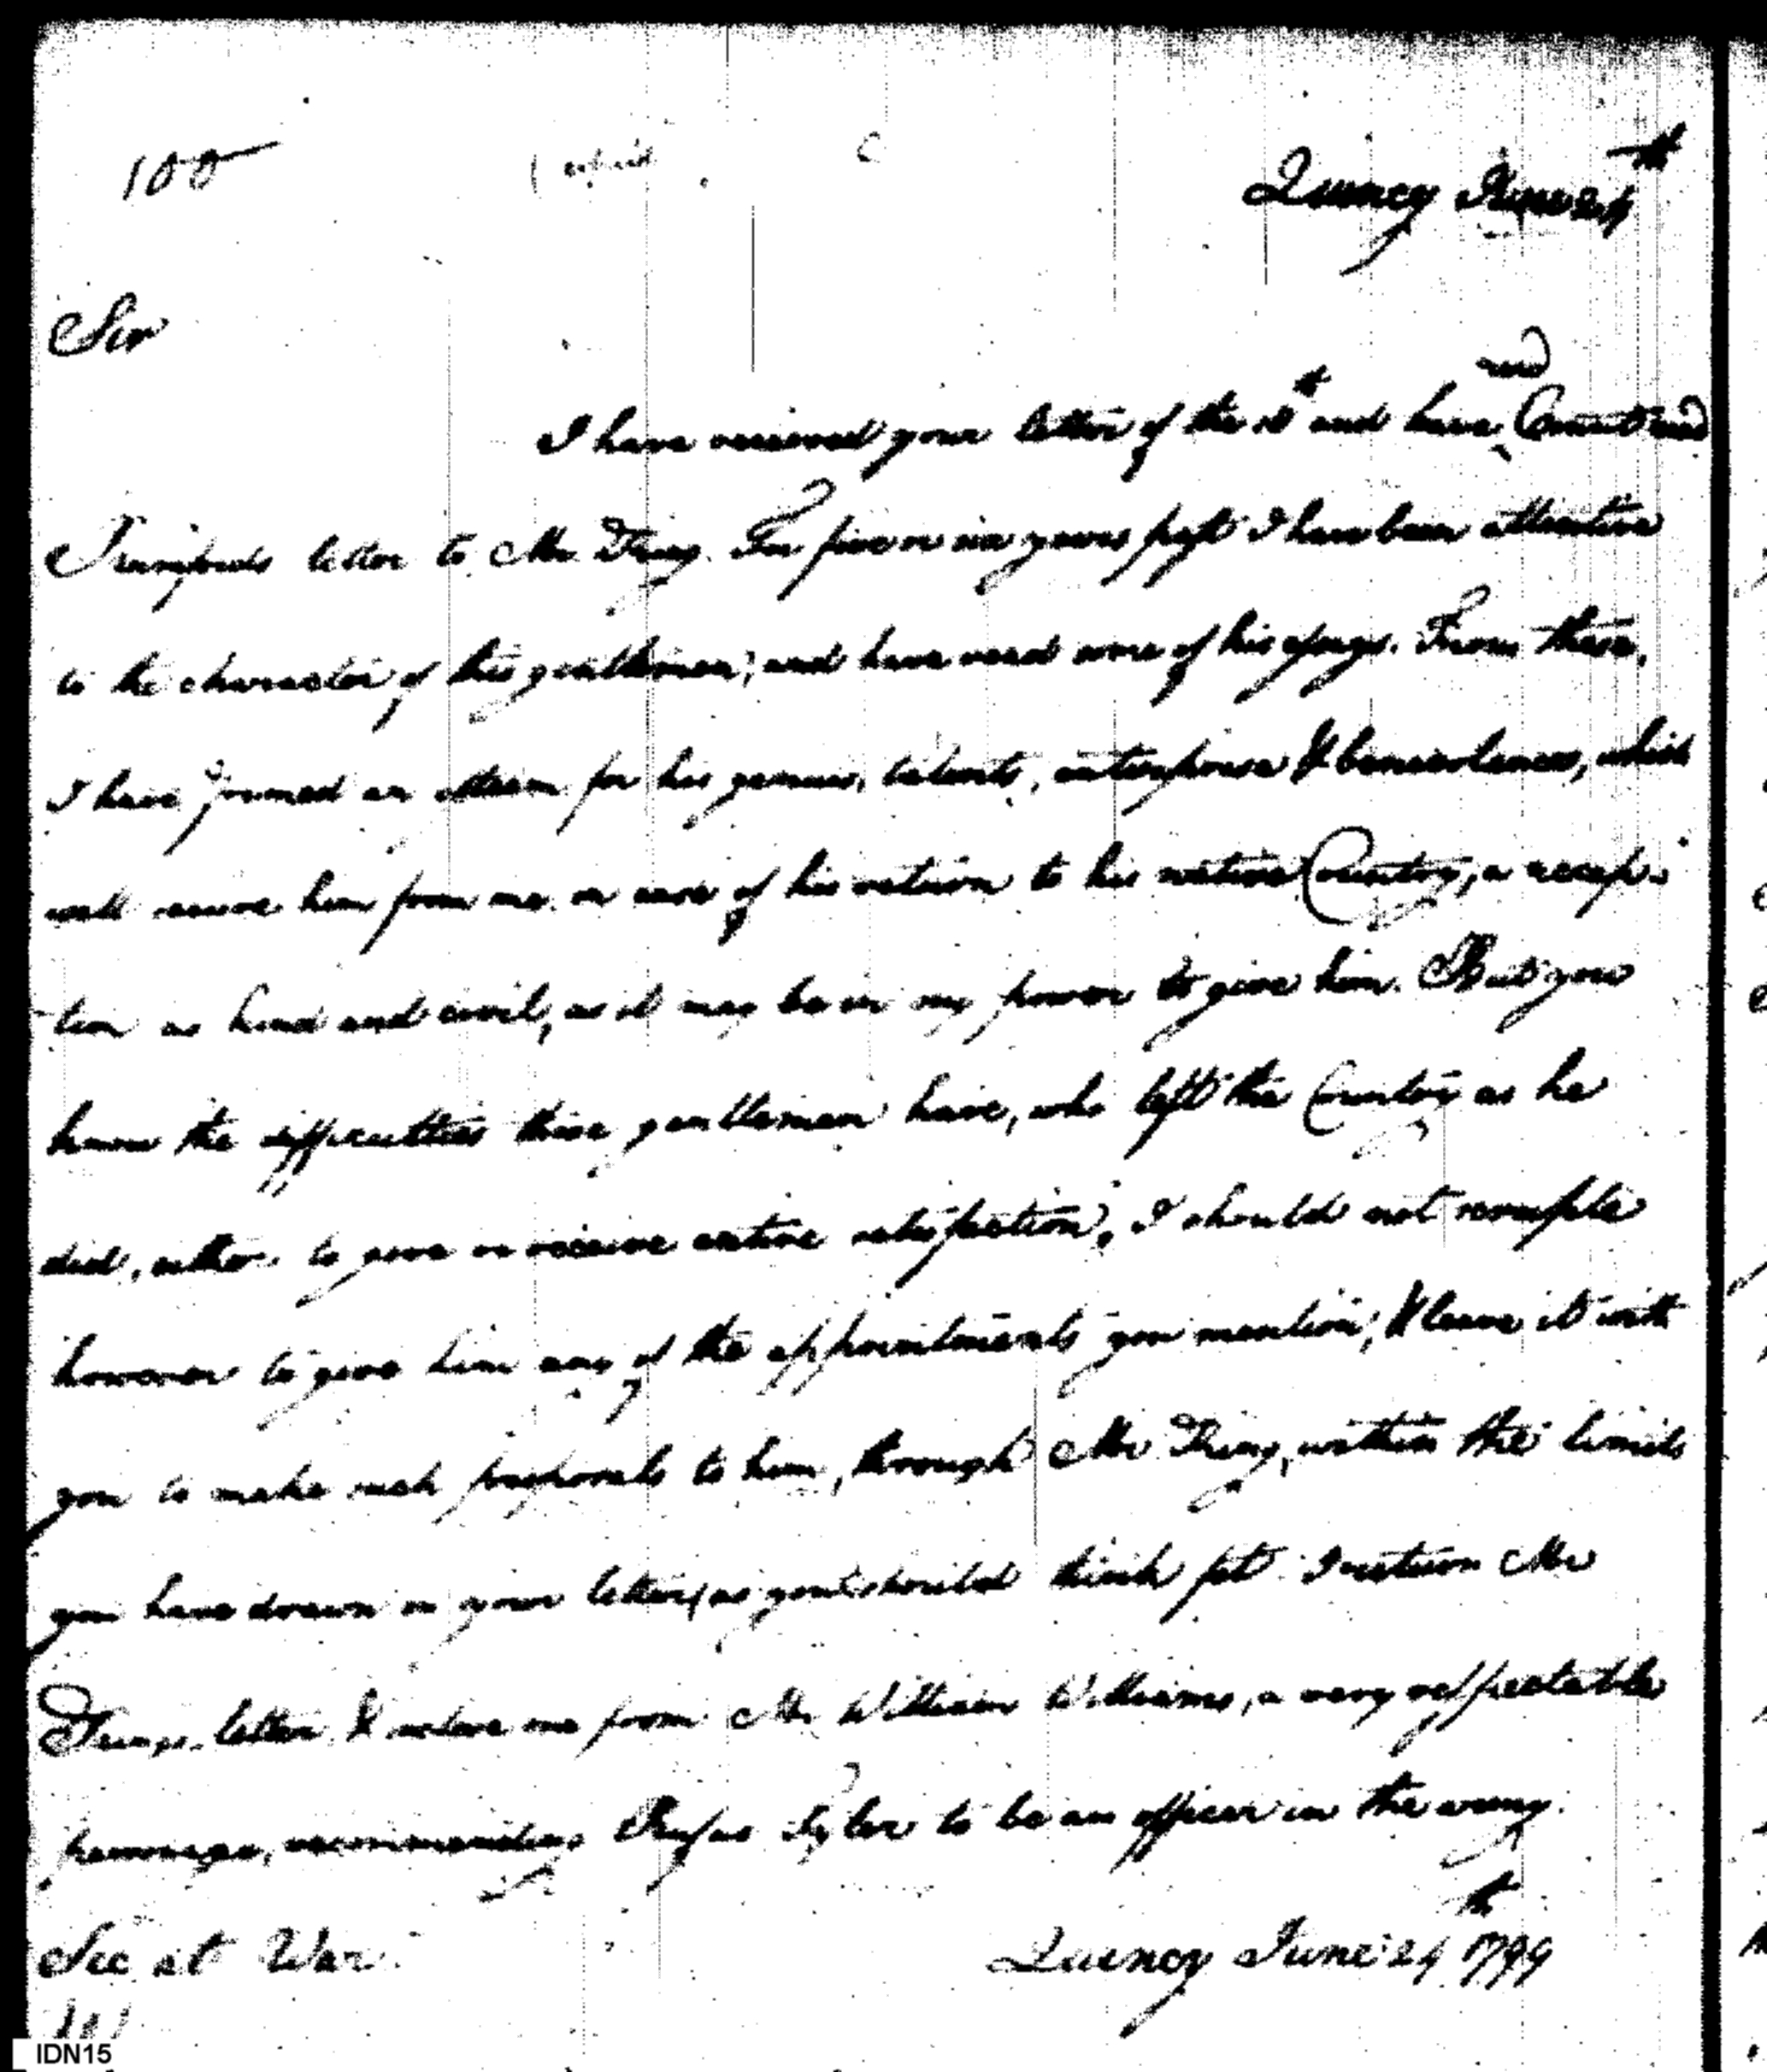 100
Quincy June 24th
Sir
I have received your letter of the 18th and have read Count
Rumfords letter to Mr. King. For five or six years past I have been attentive
to the character of this gentleman; and have read some of his essays. From these,
I have formed an esteem for his genius, talents, enterprise & benevolence, which
will secure him from me in case of his return to his native Country, a recep-
tion as kind and civil, as it may be in my power to give him. But you
know the difficulties those gentlemen have, who left the Country as he
did, either to give or receive entire satisfaction; I should not scruple
however to give him any of the appointments you mention, & leave it with
you to make such proposals to him, through Mr King, within the limits
you have drawn in your letter, as you should think fit. I return Mr
Kings letter & inclose one from Mr William Williams, a very respectable
personage, recommending Rufus Tyler to be an officer in the army.
Sec at War.
Quincy June 24th 1799
IDN15